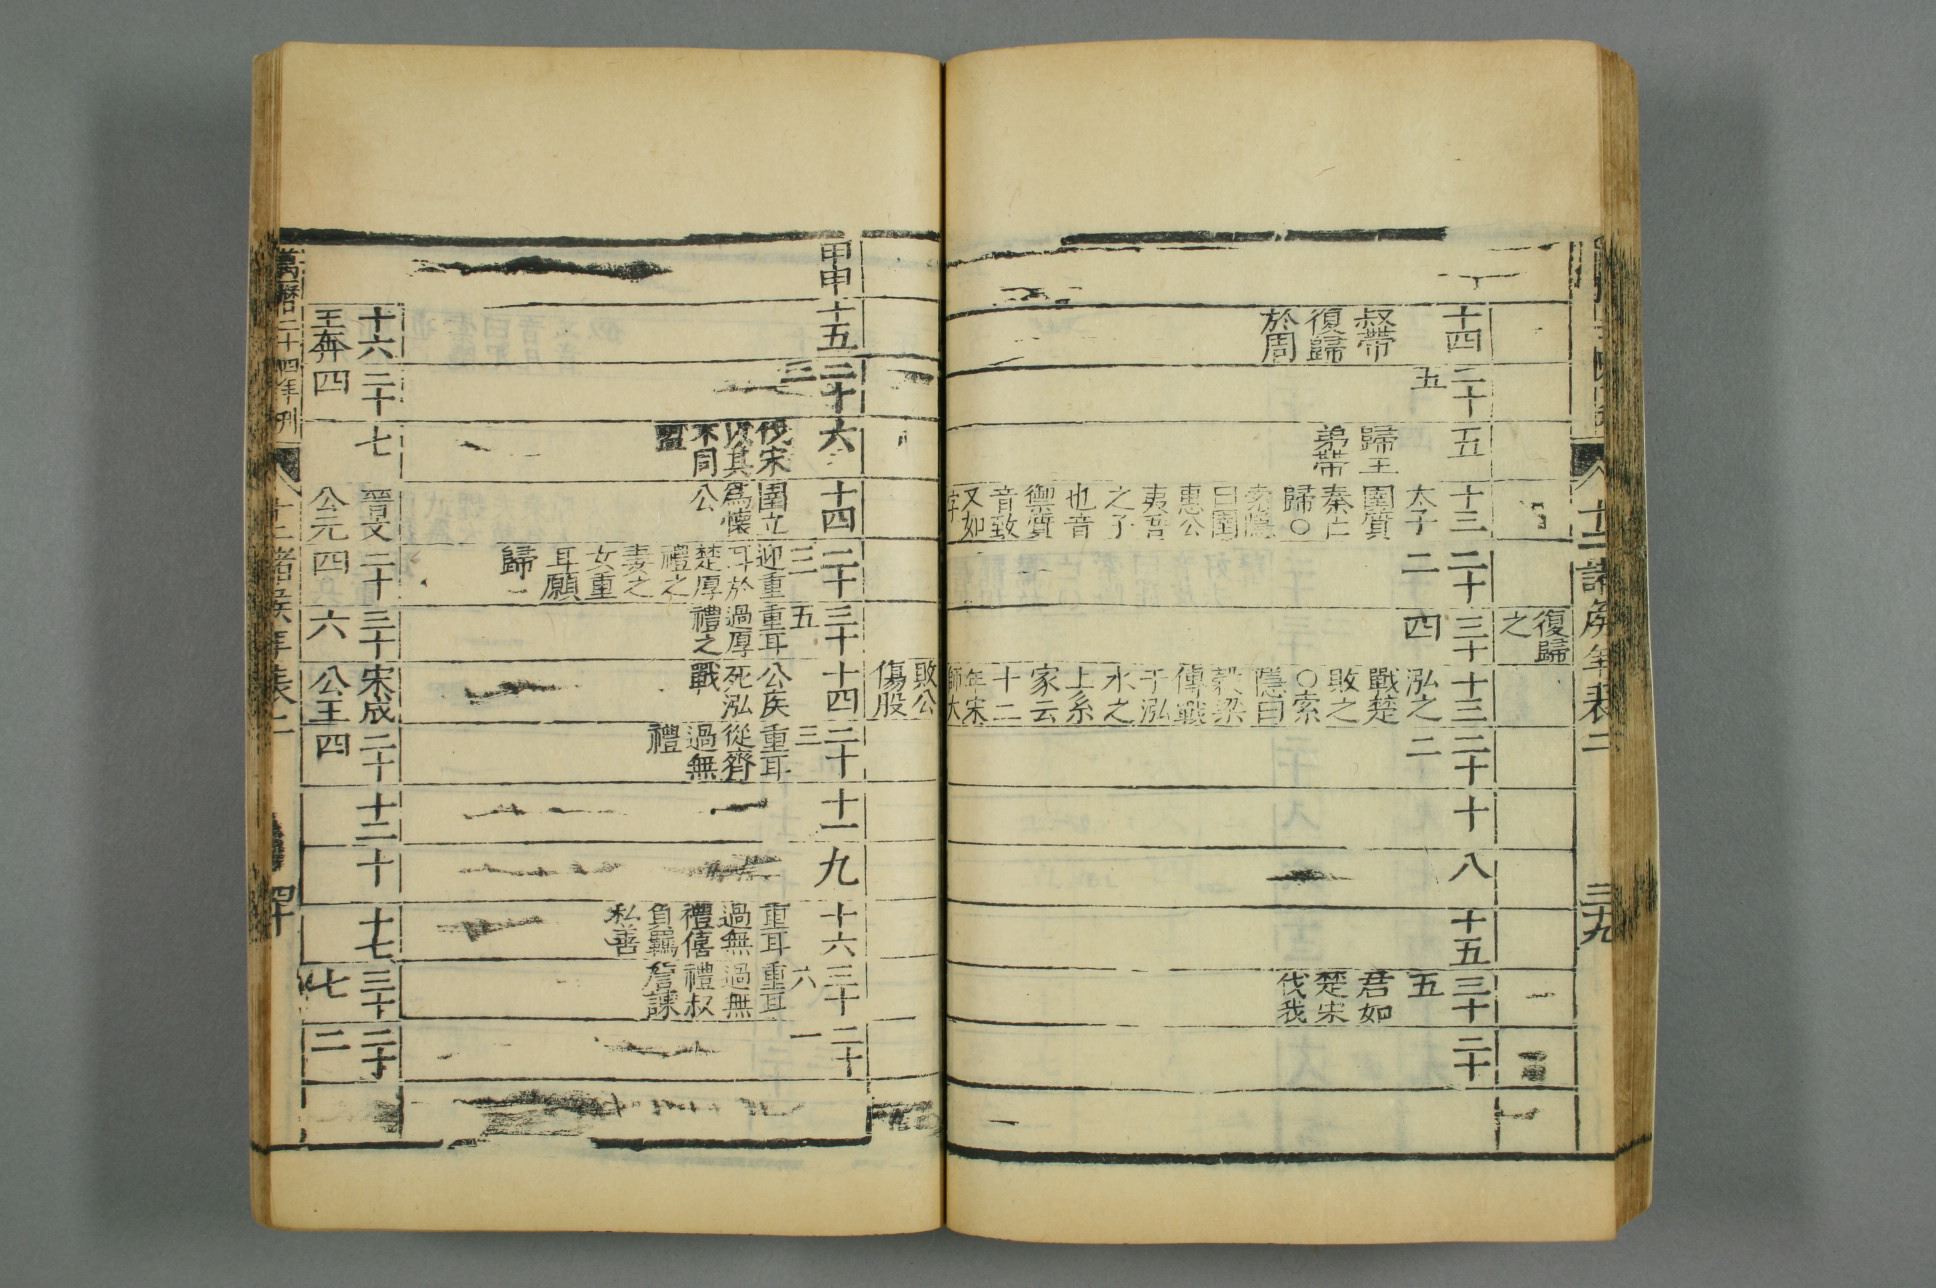 復歸
之
十四
叔帶
復歸
於周
二十
五
五
歸王
弟帶
十三
太子
圉質
秦亡
歸○
索隱
曰圉
惠公
夷吾
之子
也音
禦質
音致
又如
字
二十
二
三十
四
十三
泓之
戰楚
敗之
○索
隱曰
穀梁
傳戰
于泓
水之
上系
家云
十二
年宋
師大
二十
二
十
八
十五
三十
五
君如
楚宋
伐我
二十
十二諸侯年表二
三九
敗公
傷股
甲申
十五
二十
三
六
伐宋
以其
不同
盟
十四
圉立
為懷
公
二十
三
迎重
耳於
楚厚
禮之
妻之
女重
耳願
歸
三十
五
重耳
過厚
禮之
十四
公疾
死泓
戰
二十
三
重耳
從齊
過無
禮
十一
九
十六
重耳
過無
禮僖
負羈
私善
三十
六
重耳
過無
禮叔
詹諫
二十
一
十六
王奔
二十
四
七
晉文
公元
二十
四
三十
六
宋成
公王
二十
四
十二
十
十七
三十
七
二十
二
萬曆二十四年刊
十二諸侯年表二
四十